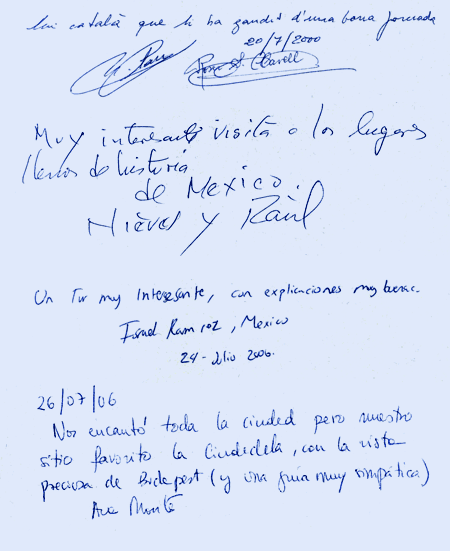 català que hi ha gaudit d'una bona jornada
20/7/2000
Rosa A. Clavell
Muy interesante visita a los lugares
llenos de historia
de Mexico.
Nieves y Raùl
Un Tur muy Interesante, con explicaciones muy buenas.
Israel Ramirez, Mexico
24 - Julio 2006.
26/07/06
Nos encantó toda la ciudad pero nuestro
sitio favorito la Ciudadela, con la vista
preciosa de Budapest (y una guía muy simpática)
Ana Monté